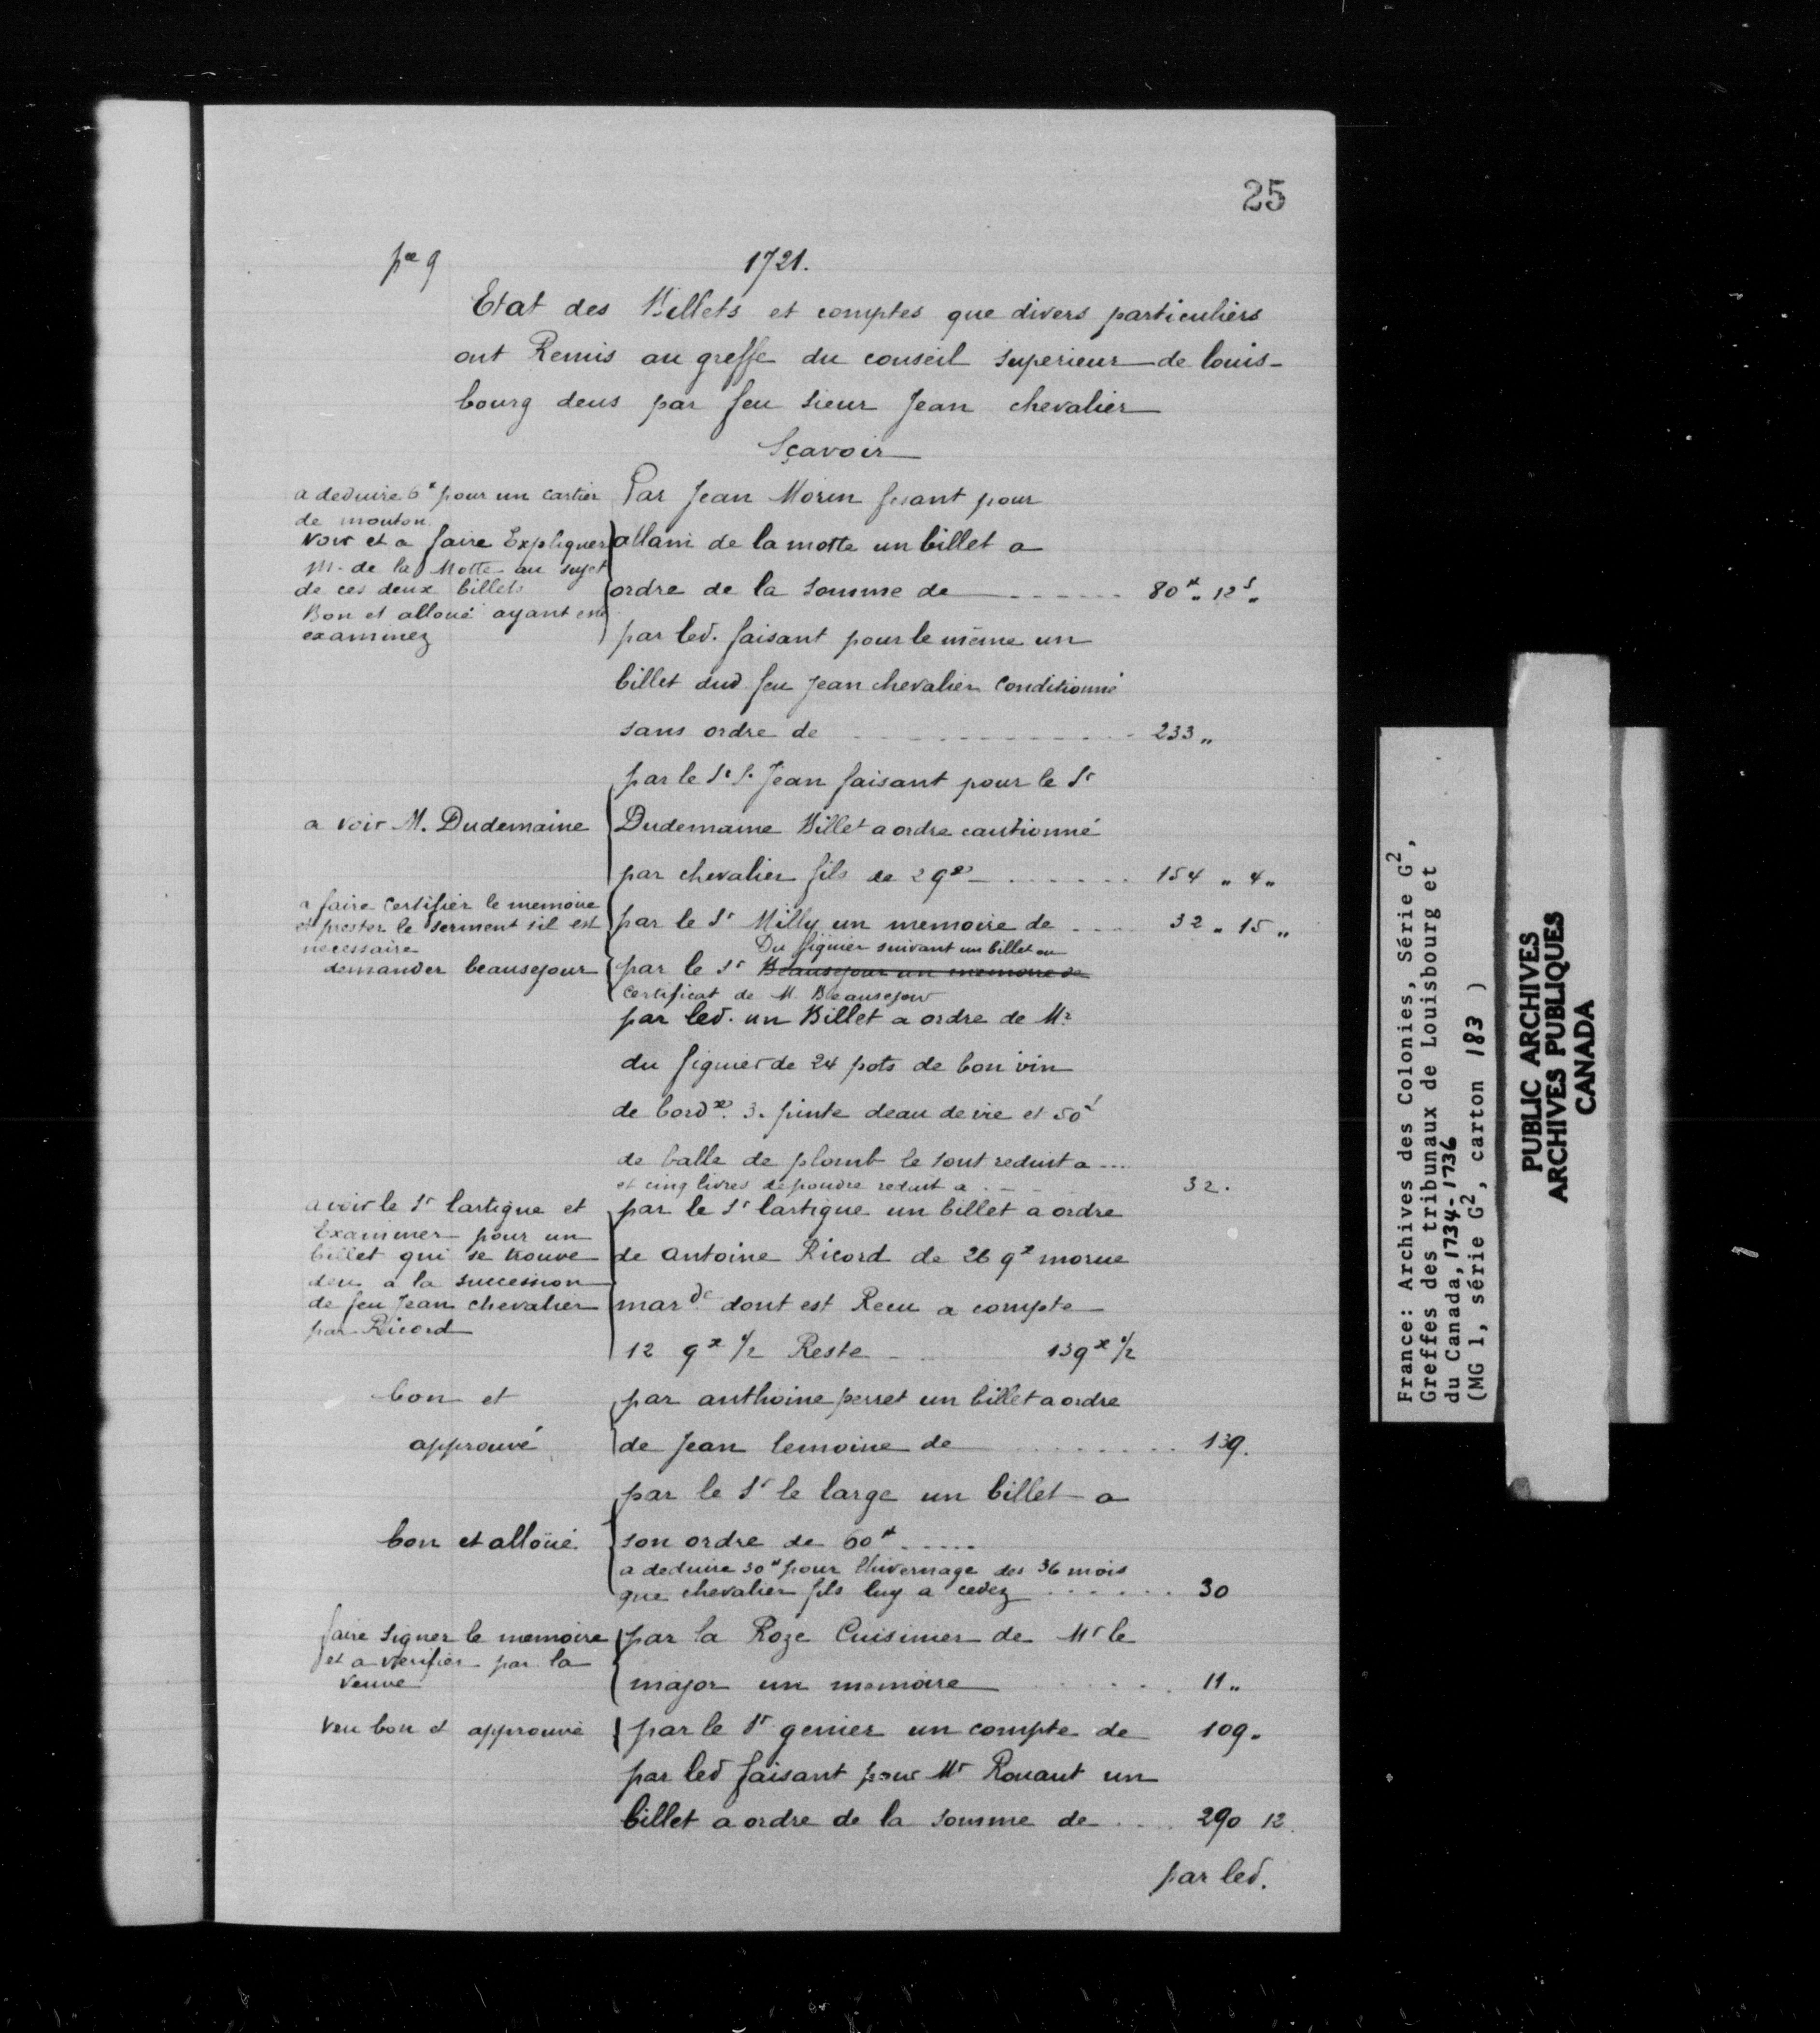 25
pce 9
1721.
Etat des Billets et comptes que divers particuliers
ont Remis au greffe du conseil superieur de louis-
bourg deus par feu sieur Jean chevalier
Sçavoir
a deduire 6# pour un cartier
de mouton
voir et a faire Expliquer
M. de la Motte au sujet
de ces deux billets
Bon et alloué ayant esté
examinez
Par Jean Morin fesant pour
allain de la motte un billet a
ordre de la somme de ...... 80# „ 12s „
par led. faisant pour le même un
billet dud feu Jean chevalier Conditionné
sans ordre de ............ 233 „
a voir M. Dudemaine
par le Sr S. Jean faisant pour le Sr
Dudemaine Billet a ordre cautionné
par chevalier fils de 29qx ....... 154 „ 4 „
a faire Certifier le memoire
et prester le serment sil est
necessaire
par le Sr Milly un memoire de .... 32 „ 15 „
demander beausejour
Du figuier suivant un billet ou
par le Sr Beausejour un memoire de
certificat de M. Beausejour
par led. un Billet a ordre de Mr
du figuier de 24 pots de bon vin
de bordx 3. pinte deau de vie et 50l
de balle de plomb le tout reduit a ....
et cinq livres de poudre reduit a . - - 32.
a voir le Sr lartigue et
Examiner pour un
billet qui se trouve
deu a la succession
de feu Jean chevalier
par Ricord
par le Sr lartigue un billet a ordre
de antoine Ricord de 26 qx morue
marde dont est Recu a compte
12 qx 1/2 Reste - .. 13qx 1/2
bon et
approuvé
par anthoine perret un billet a ordre
de Jean lemoine de ......... 139.
bon et alloüé
par le Sr le large un billet a
son ordre de 60# .....
a deduire 30# pour l'hivernage des 36 mois
que chevalier fils luy a cedez ...... 30
faire signer le memoire
et a verifier par la
veuve
par la Roze Cuisinier de Mr le
major un memoire ..... 11 „
veu bon et approuvé
par le Sr genier un compte de 109.
par led faisant pour Mr Rouaut un
billet a ordre de la somme de .... 290 12.
par led.
France: Archives des Colonies, Série G2,
Greffes des tribunaux de Louisbourg et
du Canada, 1734-1736
(MG 1, série G2, carton 183 )
PUBLIC ARCHIVES
ARCHIVES PUBLIQUES
CANADA